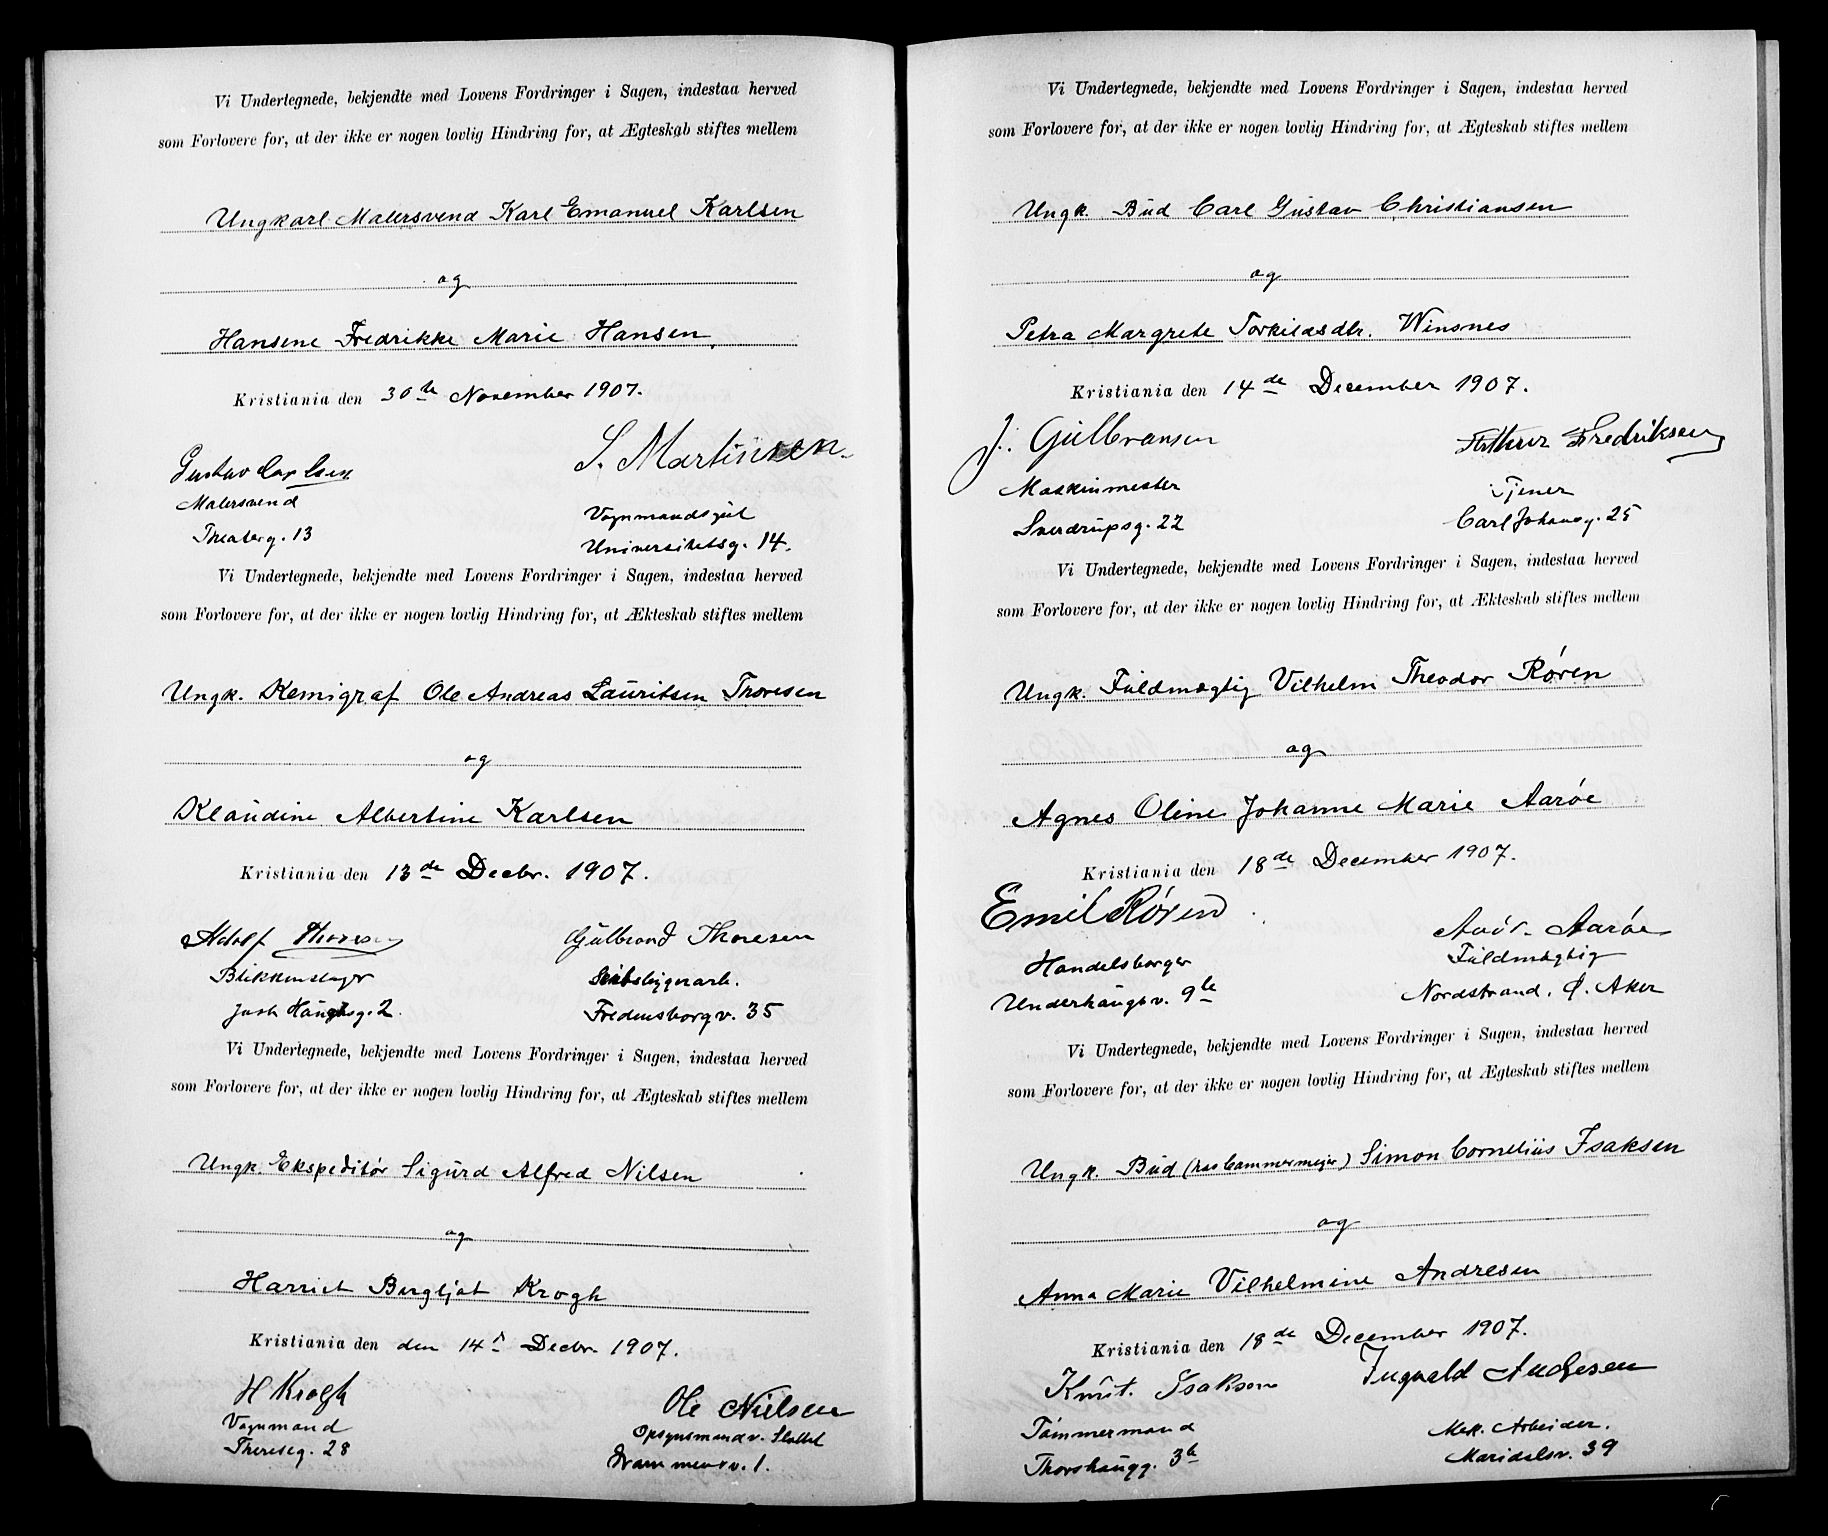 Vi Undertegnede, bekjendte med Lovens Fordringer i Sagen, indestaa herved
som Forlovere for, at der ikke er nogen lovlig Hindring for, at Ægteskab stiftes mellem
Ungkarl Malersvend Karl Emanuel Karlsen
og
Hansene Fredrikke Marie Hansen.
Kristiania den 30te November 1907.
Gustav Carlsen S. Martinsen
Malersvend Vognmandsgut
Theaterg. 13 Universitetsg. 14.
Vi Undertegnede, bekjendte med Lovens Fordringer i Sagen, indestaa herved
som Forlovere for, at der ikke er nogen lovlig Hindring for, at Ækteskab stiftes mellem
Ungk. Kemigraf Ole Andreas Lauritsen Thoresen
og
Klaudine Albertine Karlsen
Kristiania den 13de Decbr. 1907.
Adolf Thoresen Gulbrand Thoresen
Blikkenslager Skibsbyggerarb.
Just Haugsg. 2. Fredensborgv. 35
Vi Undertegnede, bekjendte med Lovens Fordringer i Sagen, indestaa herved
som Forlovere for, at der ikke er nogen lovlig Hindring for, at Ægteskab stiftes mellem
Ungk. Ekspeditør Sigurd Alfred Nilsen
og
Harriet Bergljot Krogh
Kristiania den den 14de Decbr. 1907.
H Krogh Ole Nielsen
Vognmand Opsynsmand v. Slottet
Thereseg. 28 Drammensv. 1.
Vi Undertegnede, bekjendte med Lovens Fordringer i Sagen, indestaa herved
som Forlovere for, at der ikke er nogen lovlig Hindring for, at Ægteskab stiftes mellem
Ungk. Bud Carl Gustav Christiansen
og
Petra Margrete Torkildsdtr. Winsnes
Kristiania den 14de December 1907.
J. Gulbransen Arthur Fredriksen
Maskinmester Tjener
Sverdrupsg. 22 Carl Johansg. 25
Vi Undertegnede, bekjendte med Lovens Fordringer i Sagen, indestaa herved
som Forlovere for, at der ikke er nogen lovlig Hindring for, at Ækteskab stiftes mellem
Ungk. Fuldmægtig Vilhelm Theodor Røren
og
Agnes Oline Johanne Marie Aarøe
Kristiania den 18de December 1907.
Emil Røren Aarøe
Handelsborger Fuldmægtig
Underhaugsv. 9 Nordstrand, Ø. Aker
Vi Undertegnede, bekjendte med Lovens Fordringer i Sagen, indestaa herved
som Forlovere for, at der ikke er nogen lovlig Hindring for, at Ægteskab stiftes mellem
Ungk. Bud (hos Cammermeyer) Simon Cornelius Isaksen
og
Anna Marie Vilhelmine Andresen
Kristiania den 18de December 1907.
Knut. Isaksen Ingvald Andresen
Tømmermand Mek. Arbeider.
Thorshaugg. 3b Maridalsv. 39